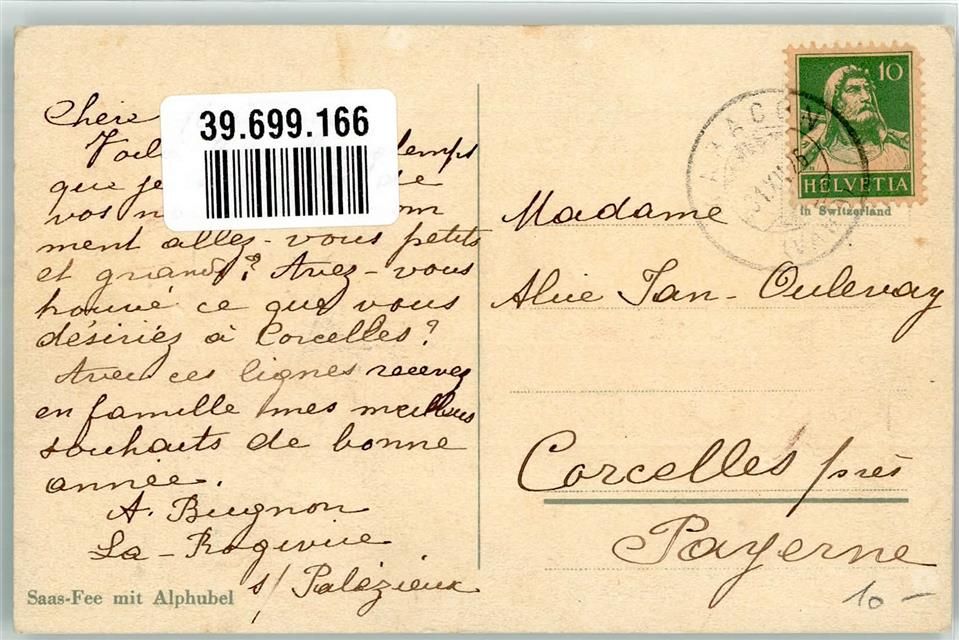 39.699.166
Chère
Voil temps
que je
vos n om
ment allez-vous petits
et grands? Avez-vous
trouvé ce que vous
désiriez à Corcelles?
Avec ces lignes recevez
en famille mes meilleurs
souhaits de bonne
année.
A. Bugnon
La-Rogivue
s/ Palézieux
Saas-Fee mit Alphubel
10
HELVETIA
in Switzerland
Madame
Alice Jan-Oulevay
Corcelles près
Payerne
10 -